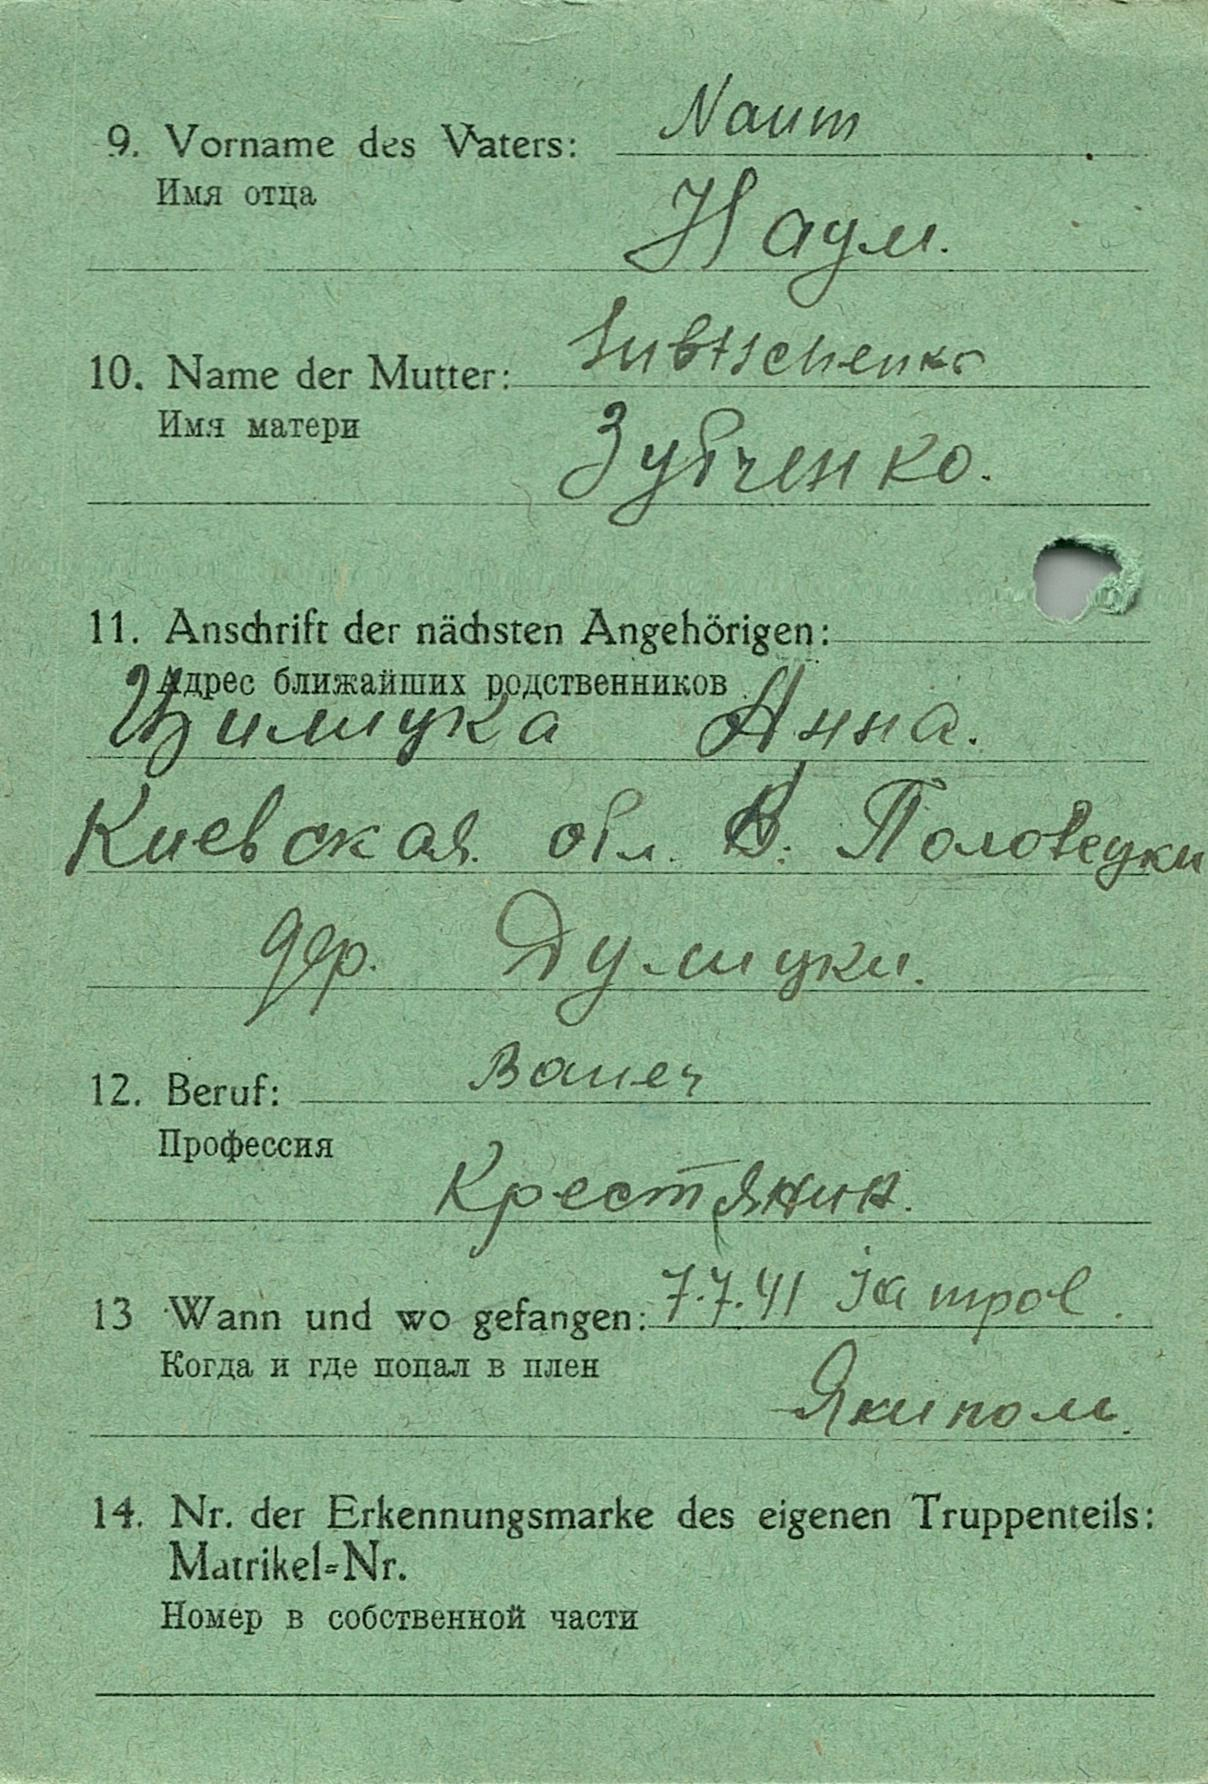 9. Vorname des Vaters: Naum
Имя отца
Наум.
10. Name der Mutter: Subtschenko
Имя матери
Зубченко.
11. Anschrift der nächsten Angehörigen:
Адрес ближайших родственников
Анна.
Киевская обл. В. Половецки
дер. Дулицки.
12. Beruf: Bauer
Профессия
Крестянин.
13 Wann und wo gefangen: 7.7.41
Когда и где попал в плен
14. Nr. der Erkennungsmarke des eigenen Truppenteils:
Matrikel-Nr.
Номер в собственной части